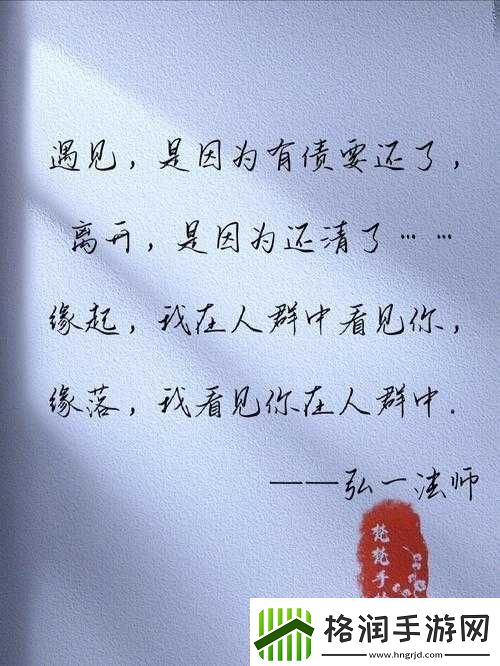 遇见，是因为有债要还了，
离开，是因为还清了……
缘起，我在人群中看见你，
缘落，我看见你在人群中.
——弘一法师
梵梵手
格润手游网
www.hngrjd.com